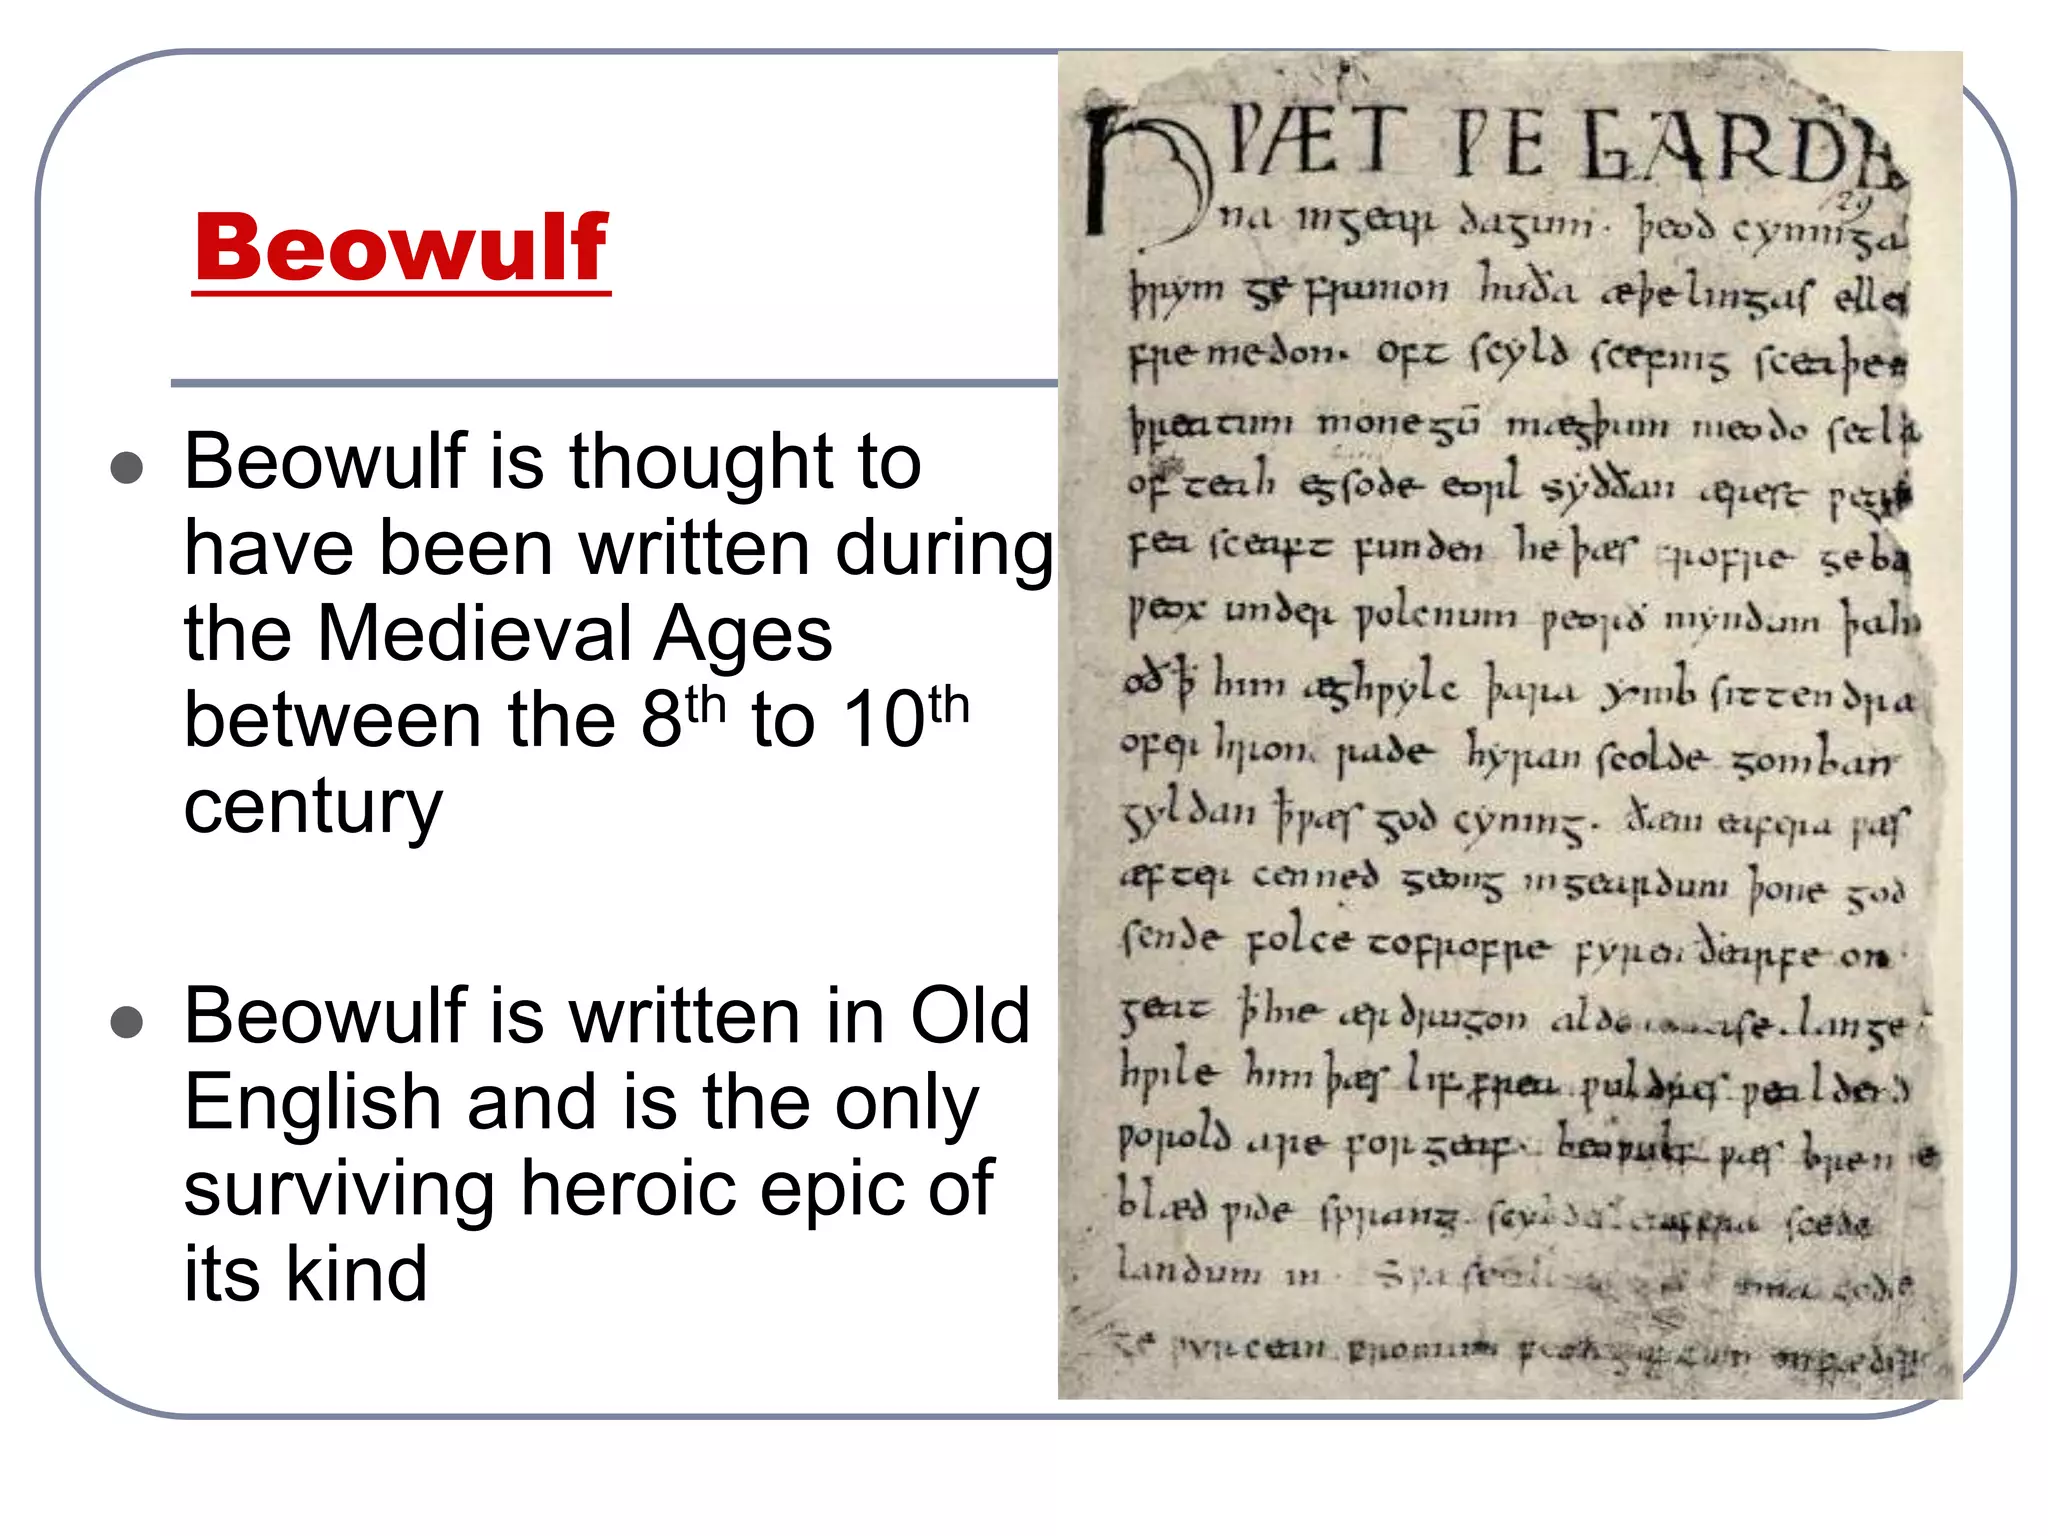 Beowulf
● Beowulf is thought to
have been written during
the Medieval Ages
between the 8th to 10th
century
● Beowulf is written in Old
English and is the only
surviving heroic epic of
its kind
HǷÆT ǷE GARDE
129
na ingear dagum. þeod cyninga
þrym ge frunon huða æþelingas elle
fremedon. oft scyld scefing sceaþe
þreatum monegū mægþum meodo setla
of teah egsode eorl syððan ærest ƿea
fea sceaft funden he þæs frofre geba
ƿeox under ƿolcnum ƿeorð myndum þah
oð þ̷ him æghƿylc þara ymb sittendra
ofer hron rade hyran scolde gomban
gyldan þ̷ ƿæs god cyning. ðæm eafera ƿæs
æfter cenned geong in geardum þone god
sende folce tofrofre fyren ðearfe on
geat þ̷ hie ær drugon aldor ase. lange
hƿile him þæs lif frea ƿuldres ƿealdend
ƿorold are for geaf. beoƿulf ƿæs breme
blæd ƿide sprang scyldes eafera scede
landum in. Sƿa sceal guma gode
ge ƿyrcean fromum feoh giftum